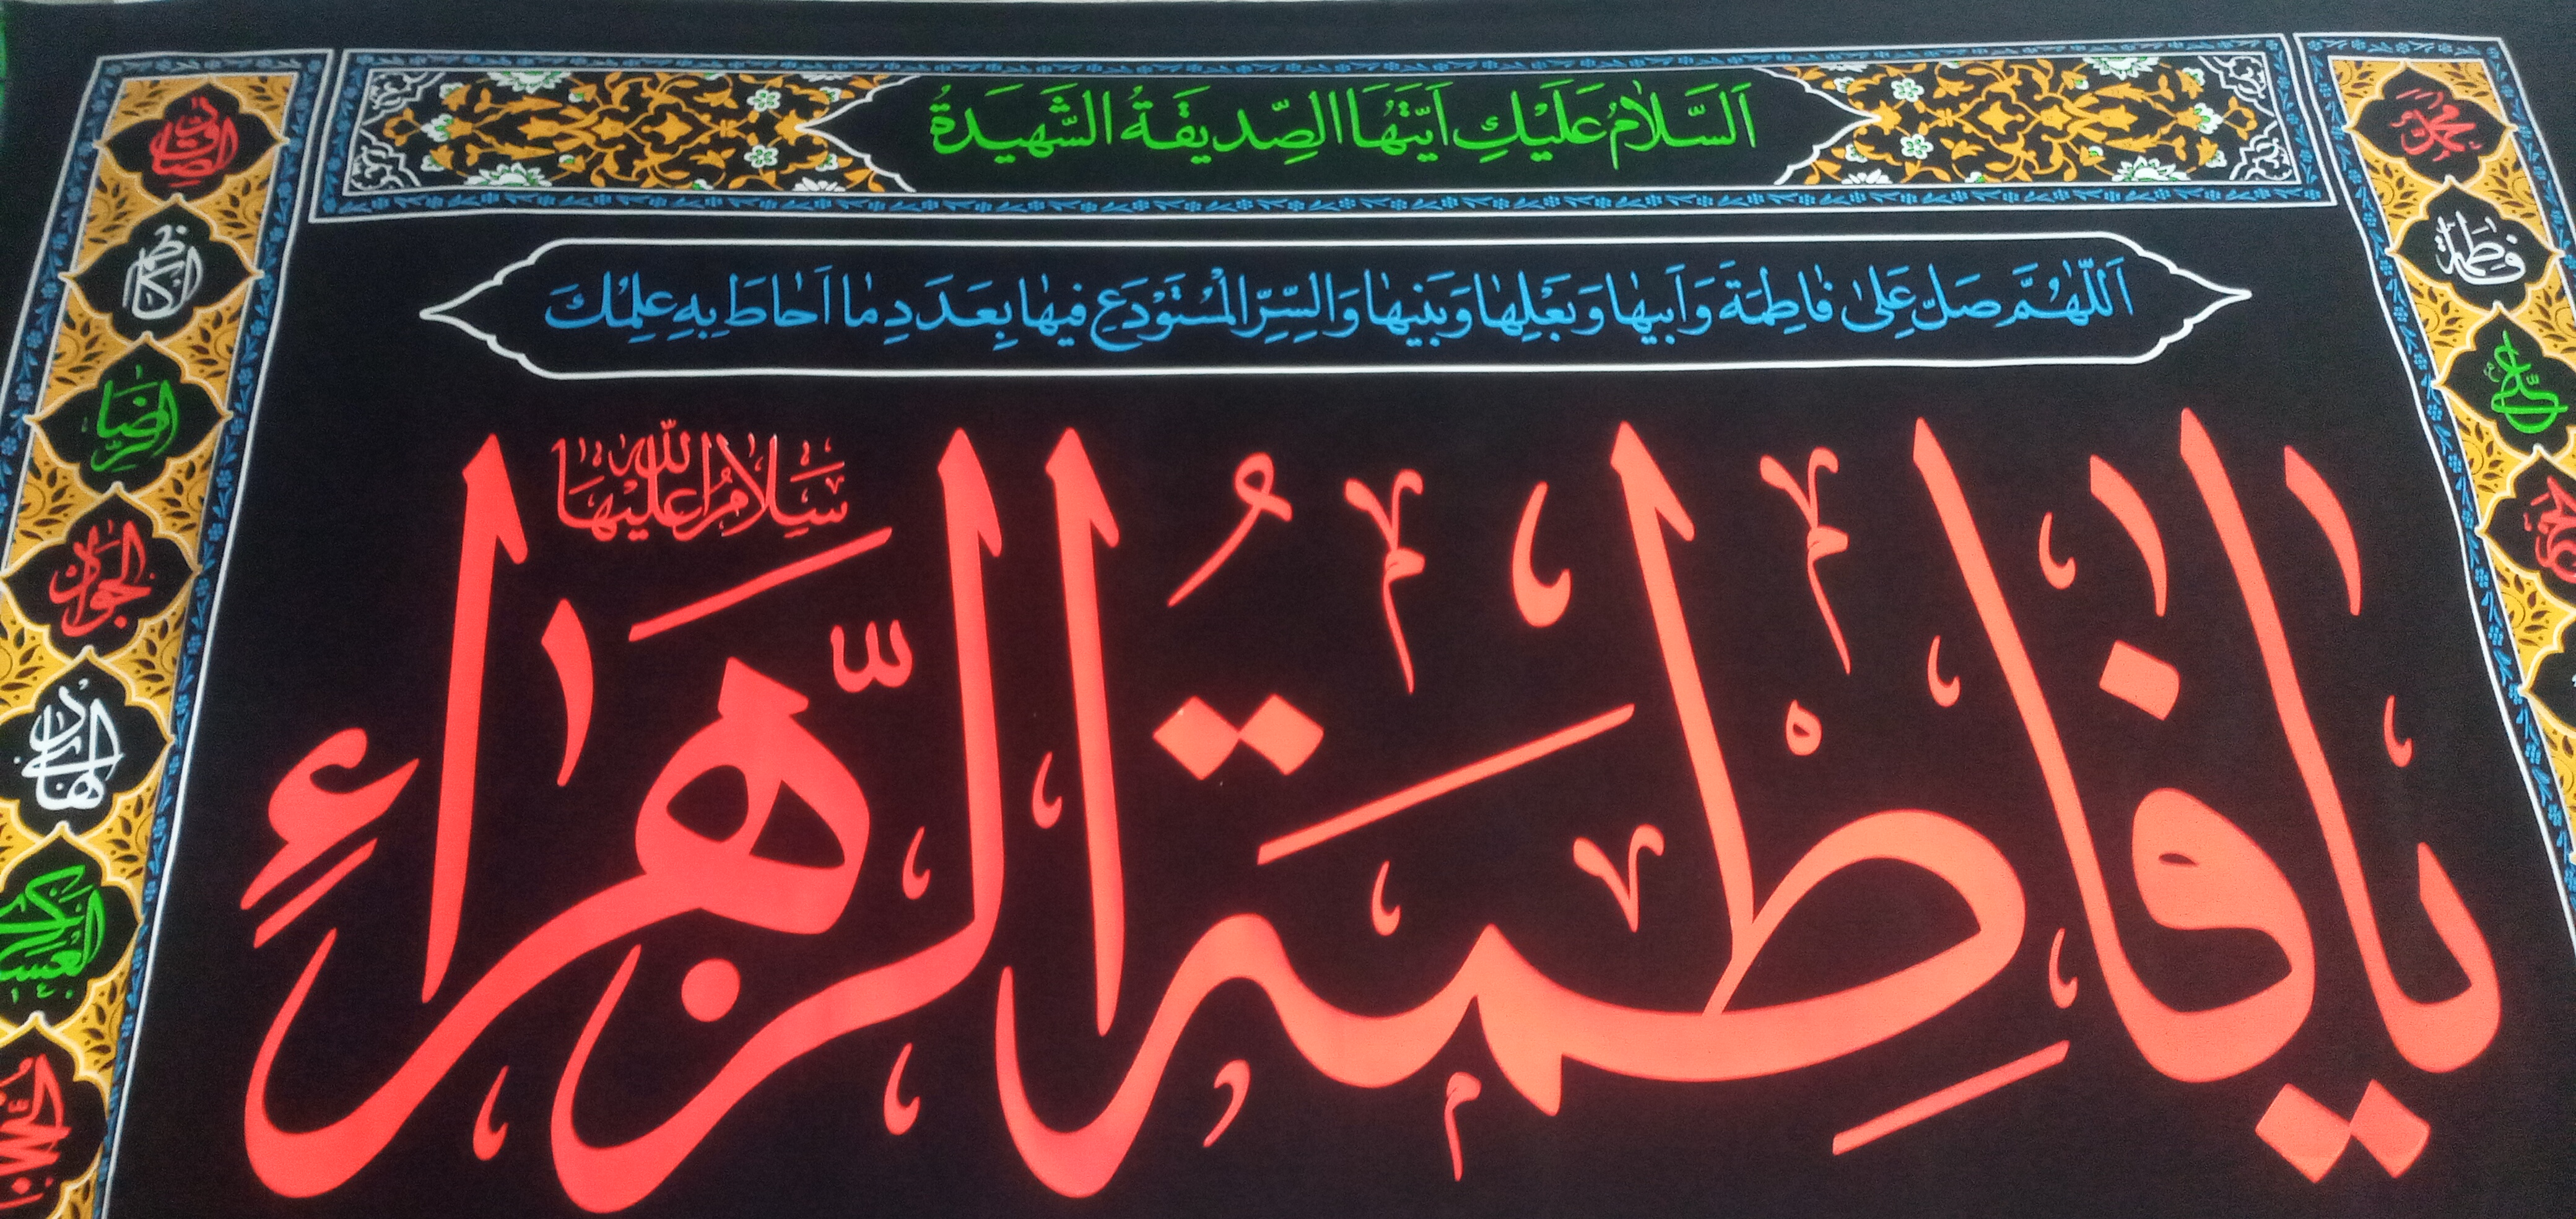 اَلسَّلامُ عَلَيْكِ اَيَّتُهَا الصِّدّيقَةُ الشَّهيدَةُ
اَللّٰهُمَّ صَلِّ عَلىٰ فاطِمَةَ وَاَبيها وَبَعْلِها وَبَنيها وَالسِّرِّ الْمُسْتَوْدَعِ فيها بِعَدَدِ ما اَحاطَ بِهِ عِلْمُكَ
يا فاطِمَةُ الزَّهراءِ
سَلامُ اللّٰهِ عَلَيْها
محمد
فاطمة
علي
الصادق
الكاظم
الرضا
الجواد
الهادي
العسكري